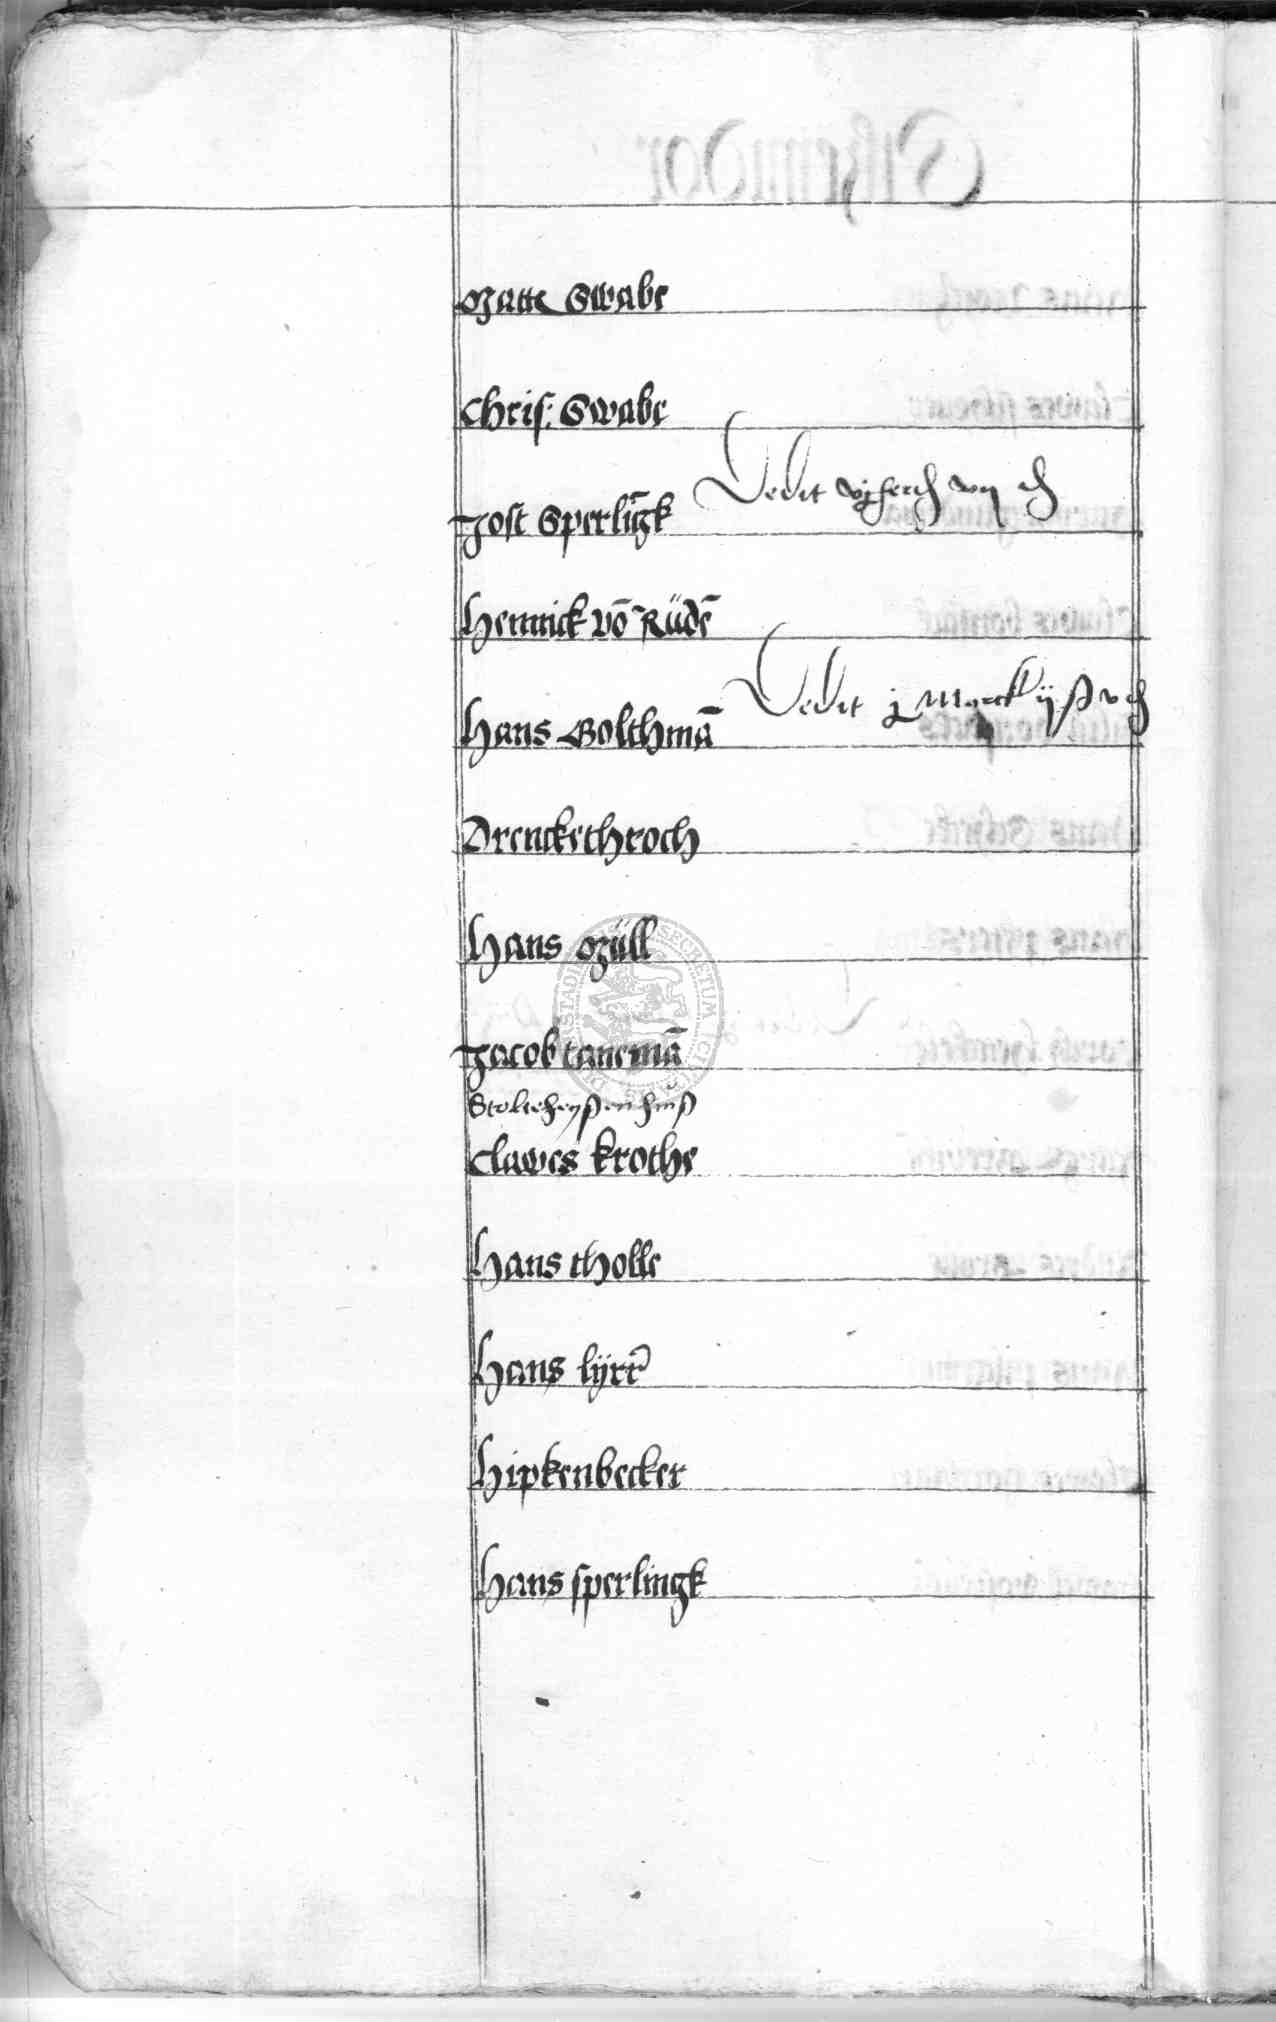 Matte Swabe
Chris: Swabe
Jost Sperlīgk
Dedit
Henrick vō Rüdē
Hans Bolthmā
Dedit j Marck ij ß v
Drenckethroch
Hans Müll
Jacob tanemā
Clawes krothe
Hans tholle
Hans lÿrr
Hipkenbecker
Hans sperlingk